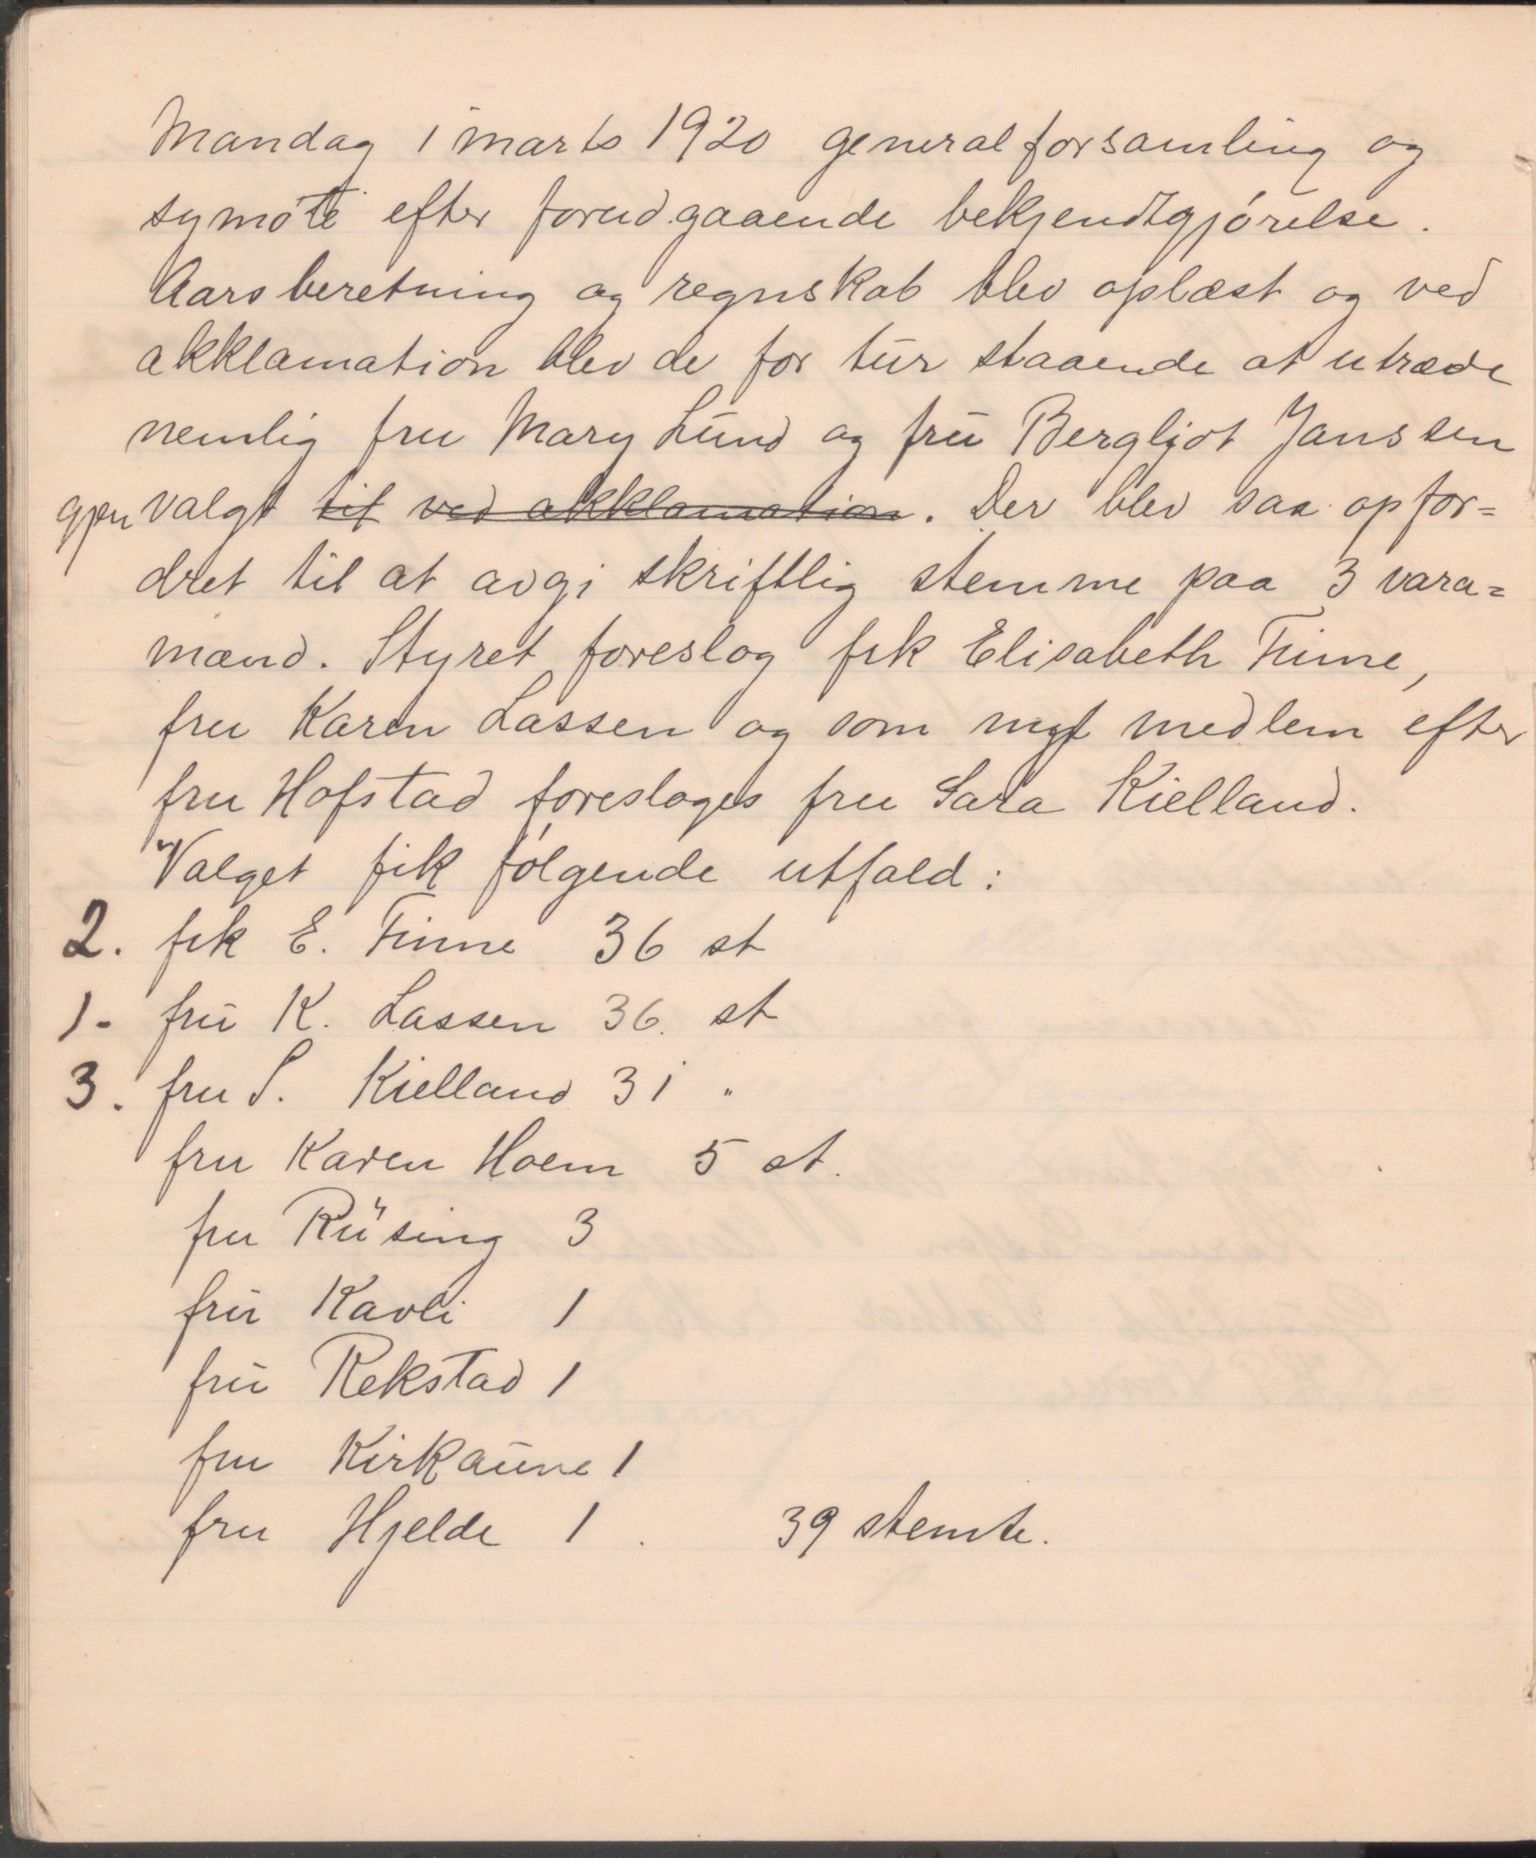 Mandag 1 marts 1920 generalforsamling og
symöte efter forudgaaende bekjendtgjörelse.
Aarsberetning og regnskab blev oplæst og ved
akklamation blev de for tur staaende at utræde
nemlig fru Mary Lund og fru Bergljot Janssen
gjenvalgt til ved akklamation. Der blev saa opfor=
dret til at avgi skriftlig stemme paa 3 vara=
mænd. Styret foreslog frk Elisabeth Finne,
fru Karen Lassen og som nyt medlem efter
fru Hofstad foresloges fru Sara Kielland.
Valget fik følgende utfald:
2. frk E. Finne 36 st
1. fru K. Lassen 36. st
3. fru S. Kielland 31 "
fru Karen Hoem 5 st.
fru Rüsing 3
fru Kavli 1
fru Rekstad 1
fru Kirkaune 1
fru Hjelde 1. 39 stemte.